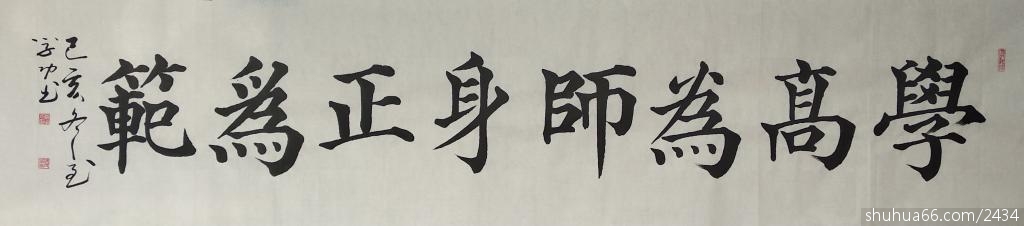 學髙為師身正爲範
己亥冬至
shuhua66.com/2434